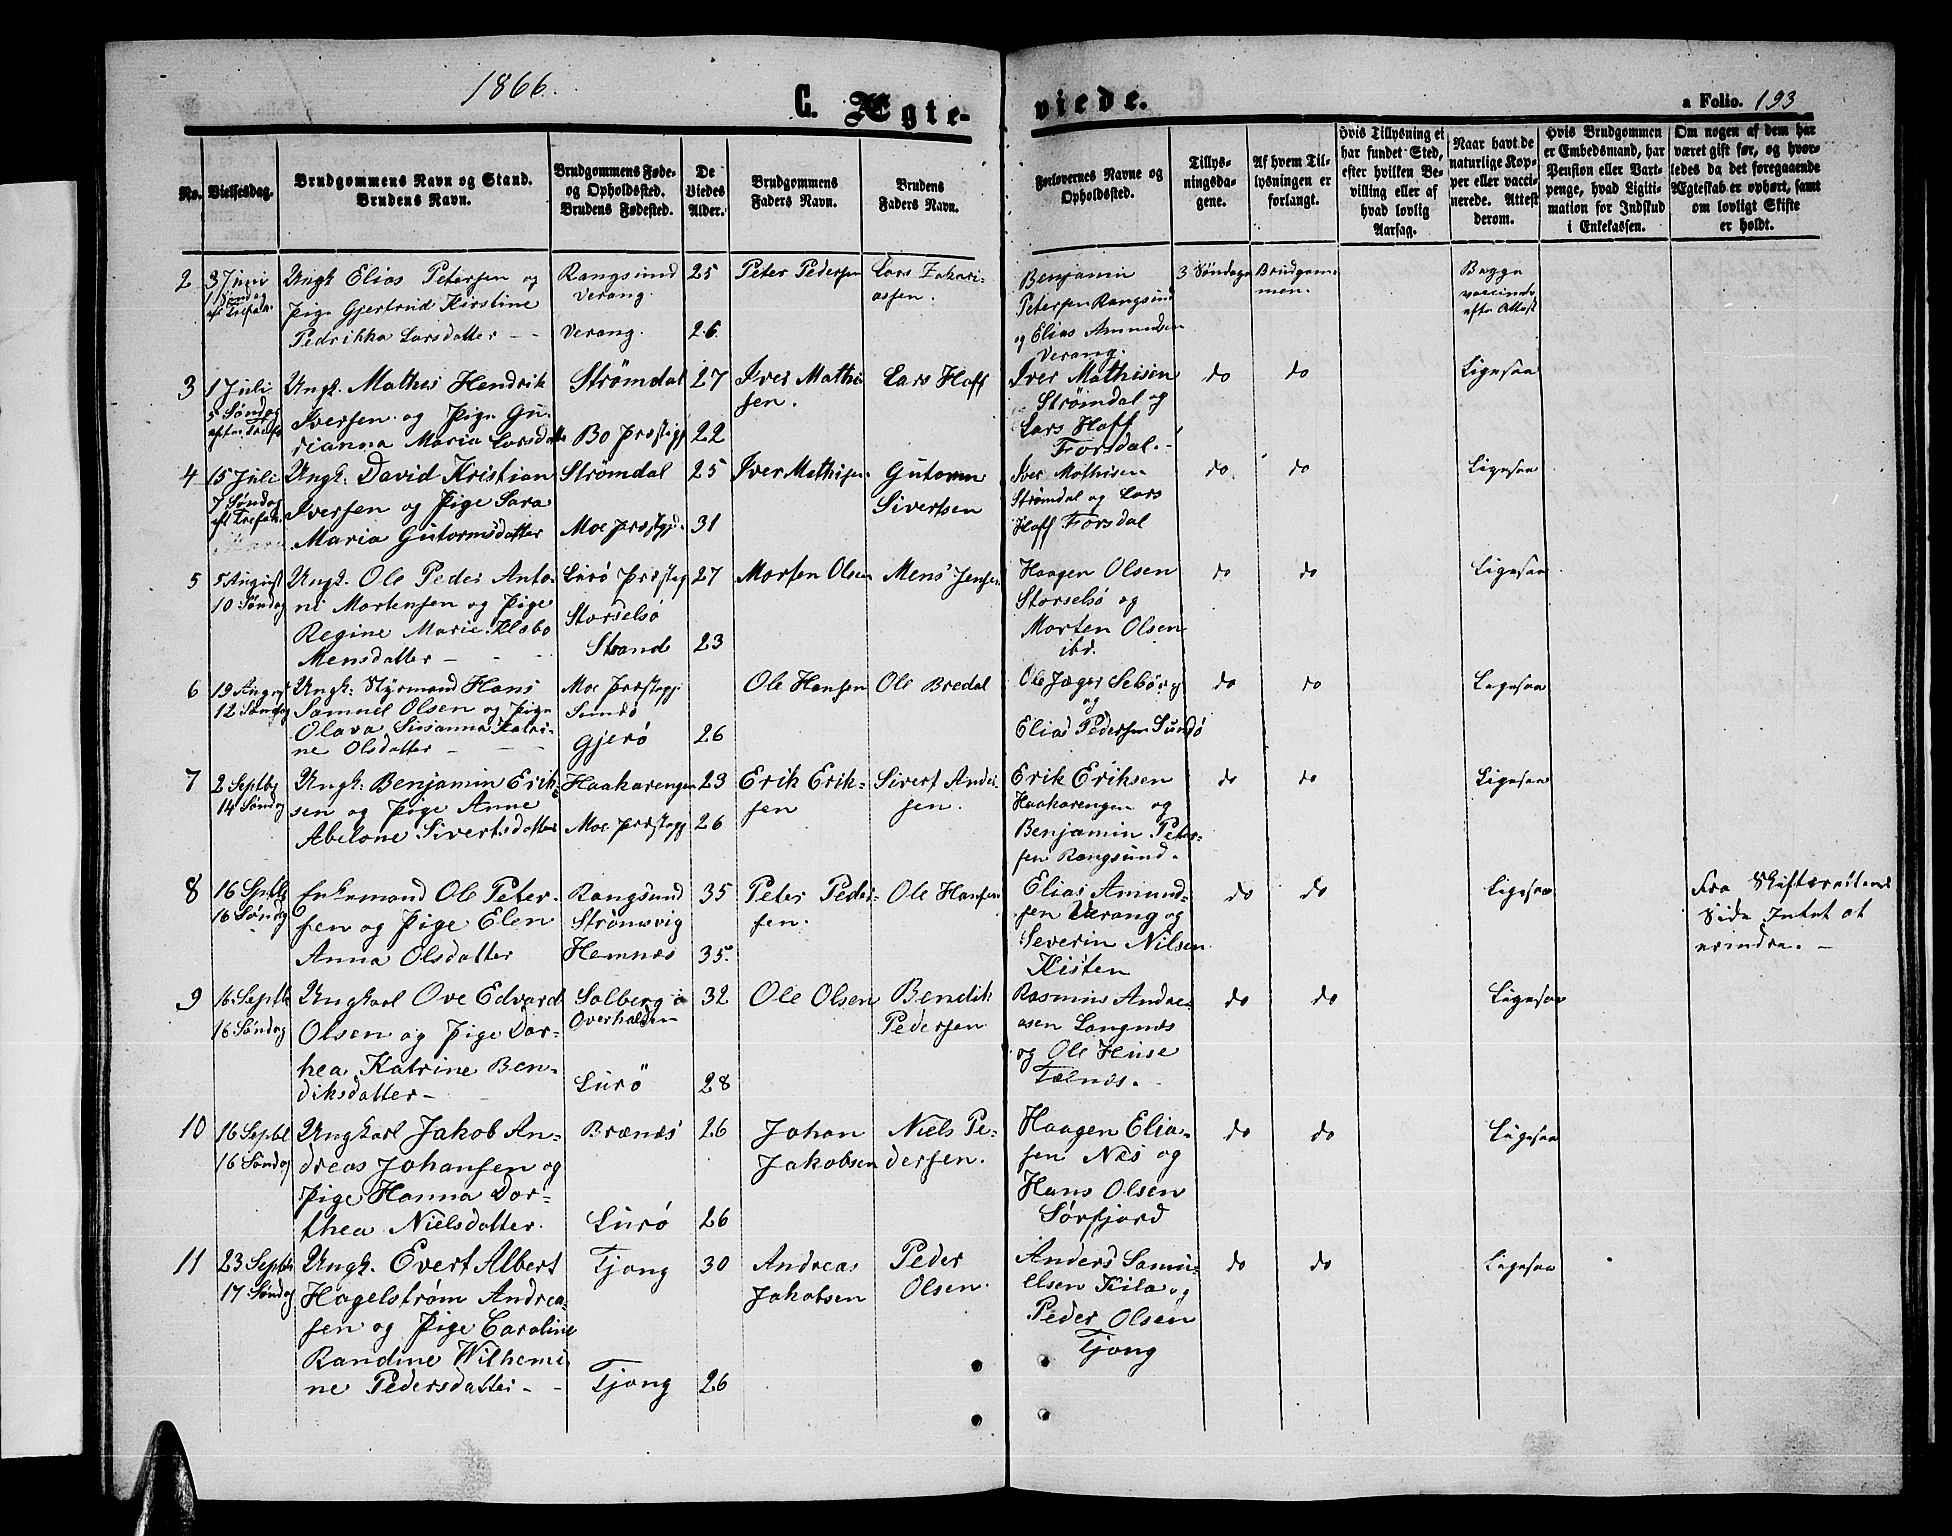 1866.
C. Ægte-
viede.
a Folio. 193
No.
Vielsesdag.
Brudgommens Navn og Stand.
Brudens Navn.
Brudgommens Føde-
og Opholdssted.
Brudens Fødested.
De
Viedes
Alder.
Brudgommens
Faders Navn.
Brudens
Faders Navn.
Forlovernes Navne og
Opholdssted.
Tillys-
ningsda-
gene.
Af hvem Til-
lysningen er
forlangt.
Hvis Tillysning et
har fundet Sted,
efter hvilken Be-
villing eller af
hvad lovlig
Aarsag.
Naar havt de
naturlige Kop-
per eller vacci-
nerede. Attest
derom.
Hvis Brudgommen
er Embedsmand, har
Pension eller Vart-
penge, hvad Ligiti-
mation for Indskud
i Enkekassen.
Om nogen af dem har
været gift før, og hvor-
ledes da det foregaaende
Ægteskab er ophørt, samt
om lovligt Skifte
er holdt.
2
3 Juni
1 Søndag
eft Trefald.
Ungk Elias Petersen og
Pige Gjertrud Kirstine
Pedrikka Larsdatter - -
Rangsund
Verang.
Verang.
25
26
Peter Pedersen
Lars Zakari-
assen.
Benjamin
Petersen Rangsund
og Elias Amundsen
Verang.
3 Søndage
Brudgom-
men.
Begge
vaccinde
efter Attest
3
1 Juli
5 Søndag
efter Trefa
Ungk. Mathis Hendrik
Iversen og Pige Gu-
rianna Maria Larsdatte
Strömdal
Bo Præstegj
27
22
Iver Mathi
sen.
Lars Hoff
Iver Mathisen
Strömdal og
Lars Hoff
Forsdal. -
do
do
Ligesaa
4
15 Juli
7 Søndag
eft Trefald.
Ungk. David Kristian
Iversen og Pige Sara
Maria Gutormsdatter
Strömdal
Moe præstegj.
25
31
Iver Mathisen
Gutorm
Sivertsen
Iver Mathisen
Strømdal og Lars
Hoff Forsdal
do.
do
Ligesaa
5
5 August
10 Søndag
Ungk. Ole Peder Anto-
ni Mortensen og Pige
Regine Marie Klabo
Mensdatter - - -
Lurø Præsteg
Storselsø
Strand
27
23
Morten Olsen
Mens Jensen
Haagen Olsen
Storselsø og
Morten Olsen
ibd.
do
do
Ligesaa
6
19 August
12 Søndag
Ungk: Styrmand Hans
Samuel Olsen og Pige
Olava Susanna Katri-
ne Olsdatter - - -
Moe Præstegj.
Sundø
Gjerø
26
Ole Hansen
Ole Bredal
Ole Jæger Sebörg
og
Elias Pedersen Sundö
do
do
Ligesaa
7
2 Septbr
14 Søndag
Ungk: Benjamin Erik-
sen og Pige Anne
Abelone Sivertsdatter
Haakarengen
Moe Præstegj
23
26
Erik Erik-
sen
Sivert Ander
sen.
Erik Eriksen
Haakarengen og
Benjamin Peter-
sen Rangsund.
do
do
Ligesaa
8
16 Septb
16 Søndag
Enkemand Ole Peter-
sen og Pige Elen
Anna Olsdatter
Rangsund
Strömsvig
Hemnæs
35
35.
Peter Peder-
sen.
Ole Hansen
Elias Amund-
sen Verang og
Severin Nilsen
Kisten
do
do
Ligesaa
Fra Skifterettens
Side Intet at
erindre. -
9
16 Septb
16 Søndag
Ungkarl Ove Edvard
Olsen og Pige Dor-
hea Katrine Ben-
diksdatter -
Solberg i
Overhalden
Lurö
32
28
Ole Olsen
Bendik
Pedersen
Rasmus Andre-
asen Langnæs
og Ole Huse
Tælnes.
do
do
Ligesaa
10
16 Septbr
16 Søndag
Ungkarl Jakob An-
dreas Johansen og
Pige Hanna Dor-
thea Nielsdatter.
Brænæs
Lurø
26
26
Johan
Jakobsen
Niels Pe-
dersen.
Haagen Elia-
sen Næs og
Hans Olsen
Sørfjord
do
do
Ligesaa
11
23 Septbr
17 Søndag
Ungk. Evert Albert
Hagelstrøm Andrea-
sen og Pige Caroline
Randine Wilhemi
ne Pedersdatter - -
Tjong
Tjong
30
26
Andreas
Jakobsen
Peder
Olsen.
Anders Samu-
elsen Kila og
Peder Olsen
Tjong
do
do
Ligesaa